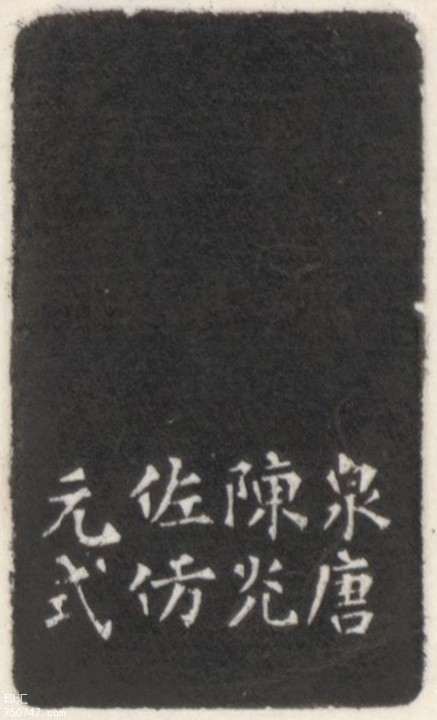 泉唐
陳光
佐仿
元式
印汇
750747.com